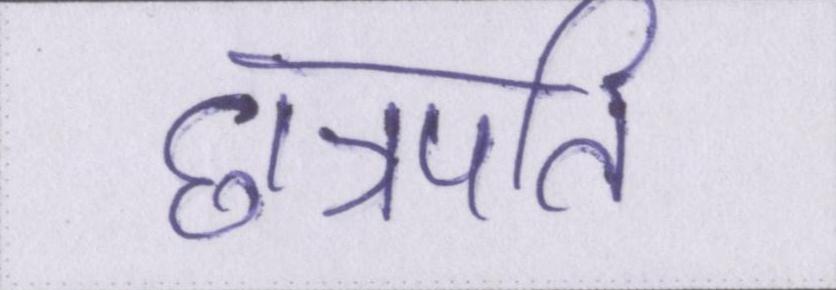 छात्रपति